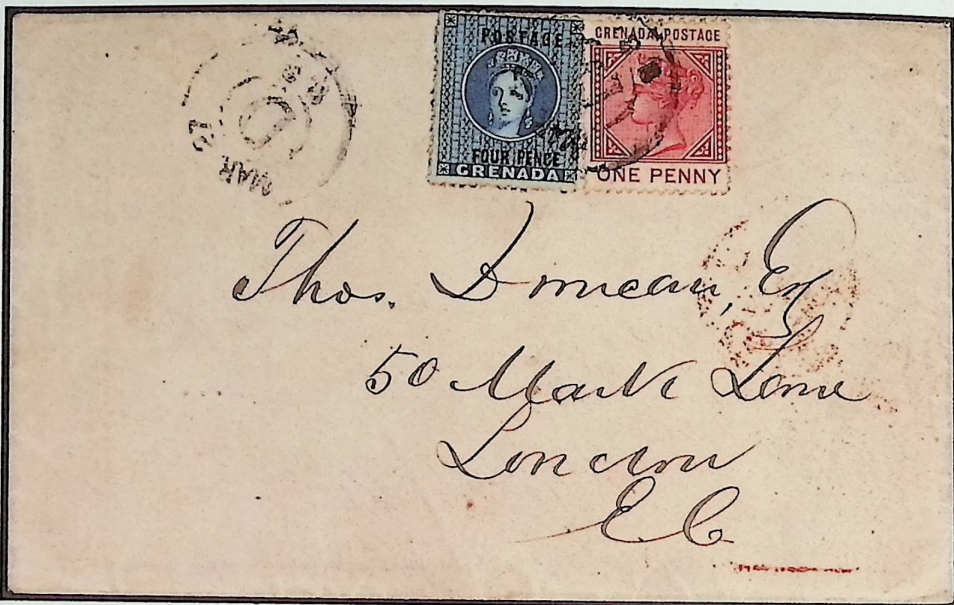 POSTAGE
FOUR PENCE
GRENADA
GRENADA POSTAGE
ONE PENNY
MAR 21
Thos. Duncan, Esq
50 Mark Lane
London
E C